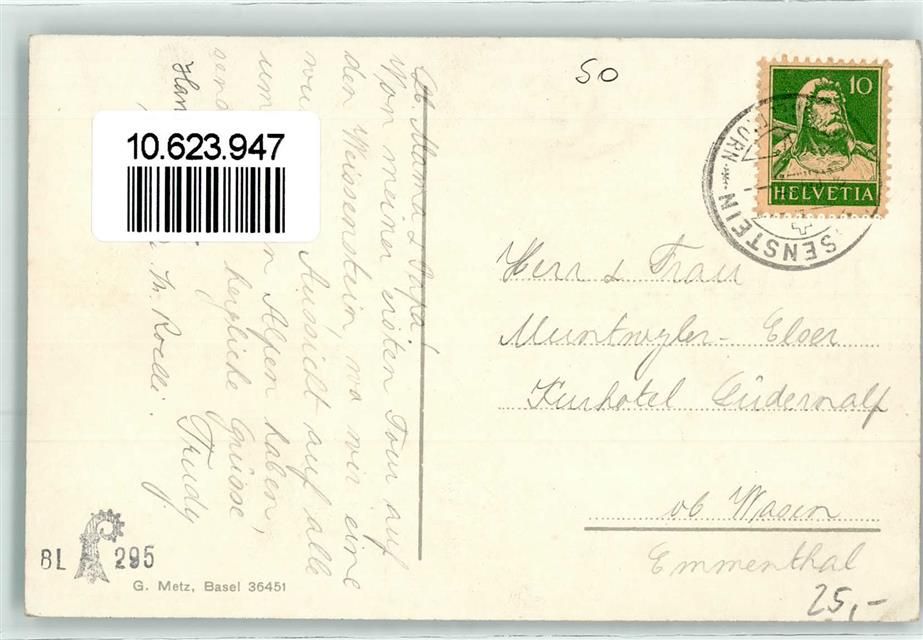 50
10
HELVETIA
SENSTEIN
10.623.947
Lb Mama & Papa!
Von meiner ersten Tour auf
den Weissenstein, wo wir eine
Aussicht auf alle
Alpen haben,
herzliche Grüsse
Trudy.
Herr & Frau
Muntwyler-Elser
Kurhotel Lüdernalp
ob Wasen
Emmenthal
25,-
BL 295
G. Metz, Basel 36451